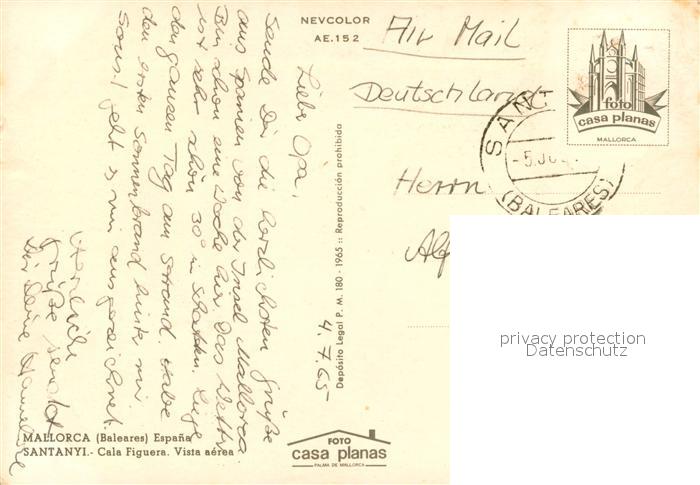 NEVCOLOR
AE.152
Air Mail
Deutschland
Herrn
Alf
foto
casa planas
MALLORCA
SANT
-5.JU
(BALEARES)
privacy protection
Datenschutz
4.7.65
Liebe Opa,
Sende Dir die herzlichsten Grüße
aus Spanien von der Insel Mallorca.
Bin schon eine Woche hier. Das Wetter
ist sehr schön 30° im Schatten. Liege
den ganzen Tag am Strand. Habe
den ersten Sonnenbrand hinter mir.
Sonst geht es mir ausgezeichnet.
Herzliche
Grüße sendet
Dir Deine Hannelore
Depósito Legal P. M. 180 - 1965 :: Reproducción prohibida
MALLORCA (Baleares) España
SANTANYI.- Cala Figuera. Vista aérea
FOTO
casa planas
PALMA DE MALLORCA